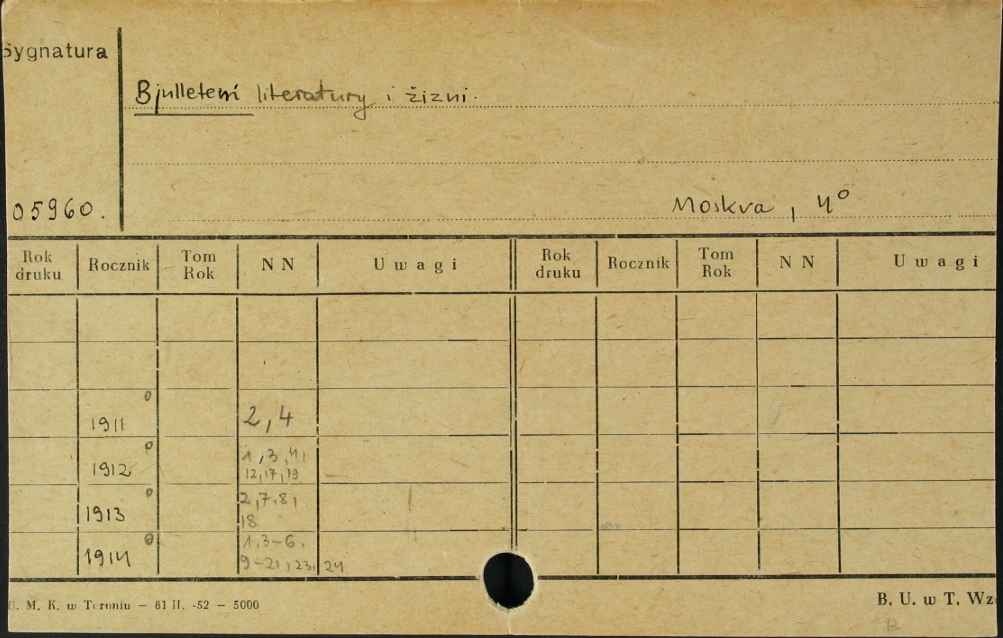 Sygnatura
Bjulleteni literatury i žizni.
05960.
Moskva, 4º
Rok druku Rocznik Tom Rok NN Uwagi Rok druku Rocznik Tom Rok NN Uwagi
1911 º 2, 4
1912 º 1, 3, 4,
12, 17, 19
1913 º 2, 7, 8,
18
1914 º 1, 3-6,
9-21, 23, 24
U. M. K. w Toruniu — 61 II. -52 — 5000
B. U. w T. Wz